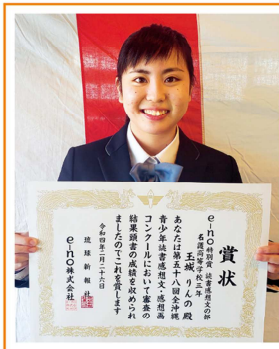 賞状
e-no特別賞 読書感想文の部
名護高等学校三年
玉城 りんの 殿
あなたは第五十八回全沖縄
青少年読書感想文・感想画
コンクールにおいて審査の
結果頭書の成績を収められ
ましたのでこれを賞します
令和四年二月二十六日
琉球新報社
e-no株式会社